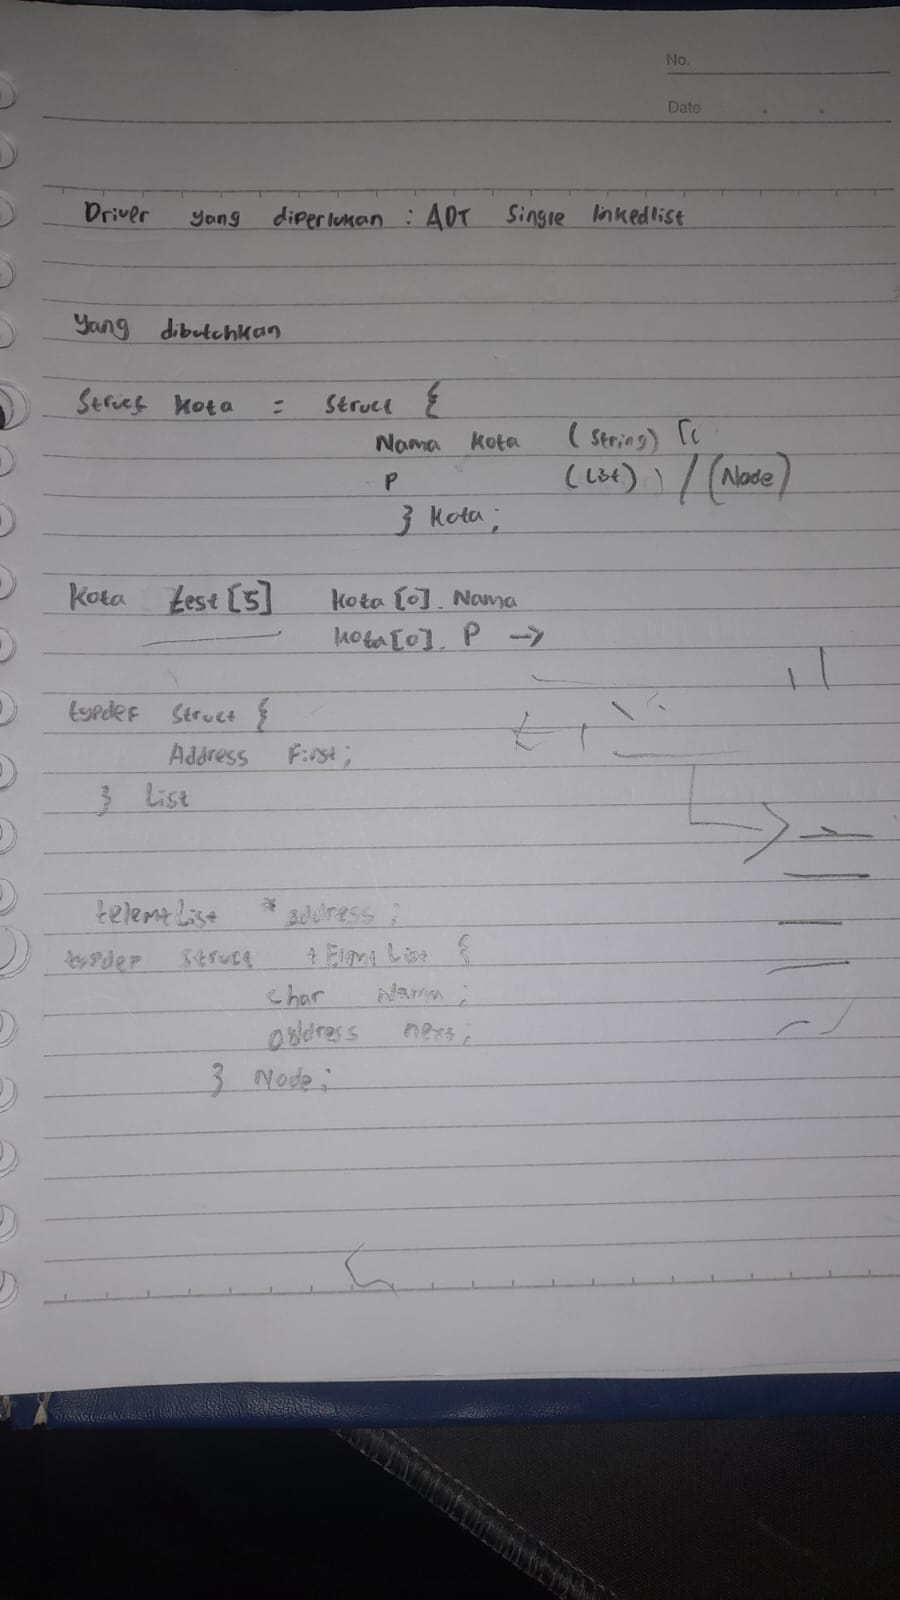 No.
Date
Driver yang diperlukan : ADT Single linkedlist
Yang dibutuhkan
Struct Kota = Struct {
Nama Kota (String)
P (List) / (Node)
} Kota;
Kota test[5] Kota[0]. Nama
Kota[0]. P →
typdef Struct {
Address First;
} List
telemtList * address;
typdef Struct tElmtList {
char Nama;
address next;
} Node;